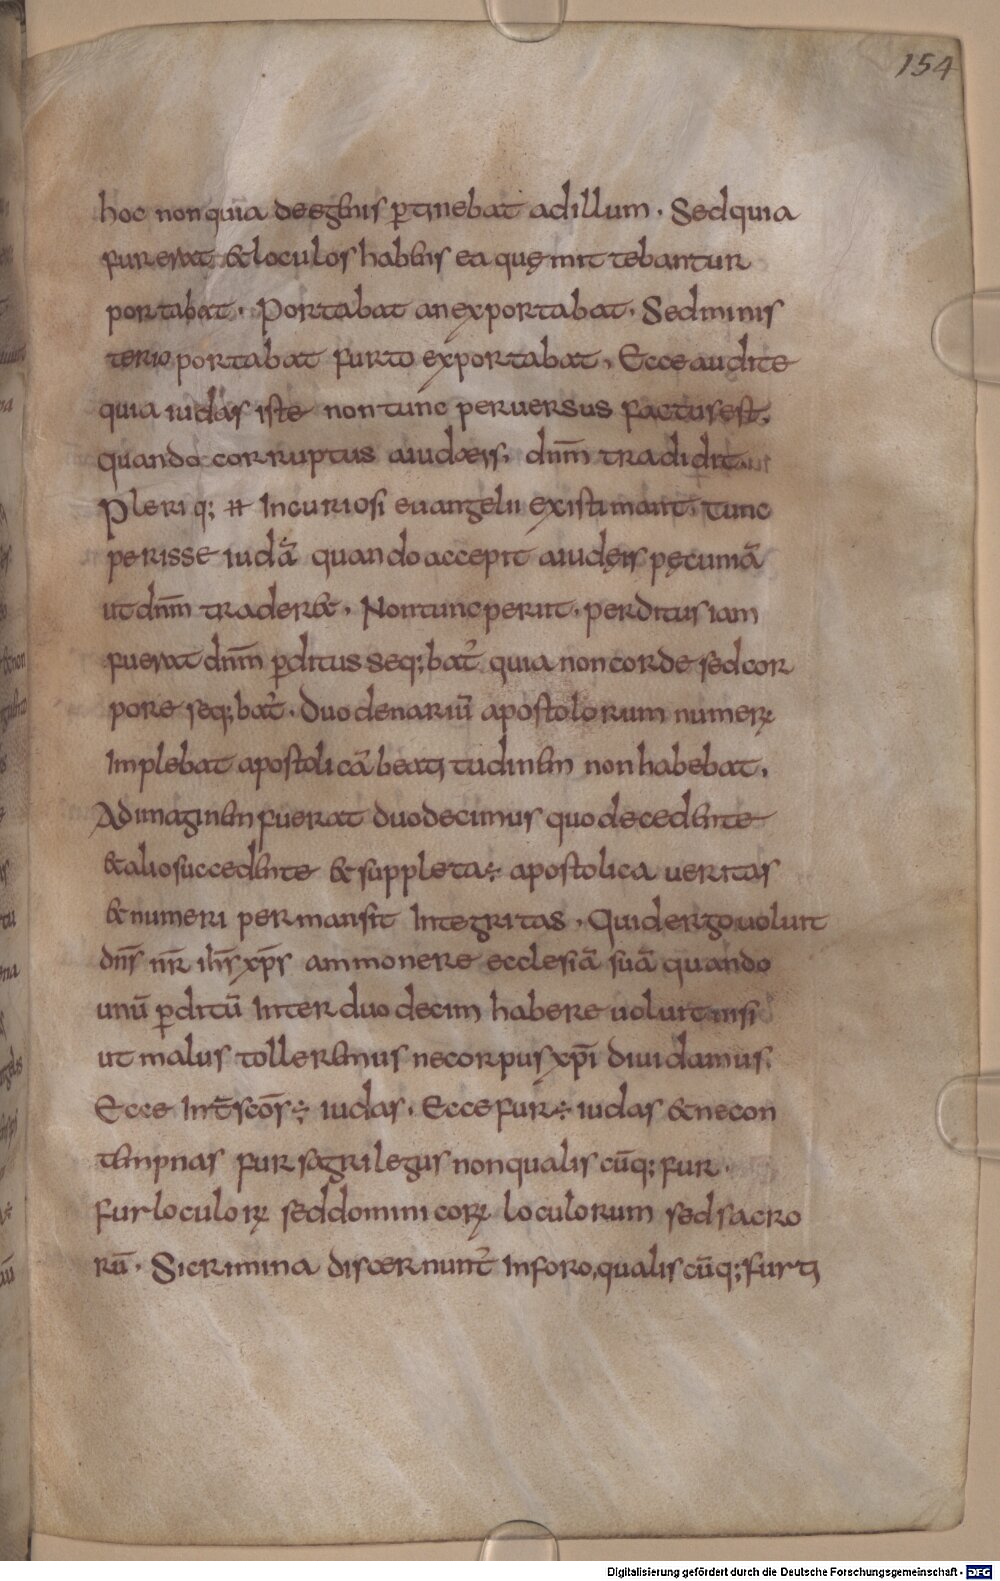 154
hoc non quia de egenis ꝑtinebat ad illum . Sed quia
fur erat & loculos habens ea quę mittebantur
portabat . Portabat an exportabat . Sed minis
terio portabat furto exportabat . Ecce audite
quia iudas iste non tunc peruersus factus est .
quando corruptus a iudæis . dn̄m tradidit
Pleriq; ÷ Incuriosi euangelii existimant . tunc
perisse iudā quando accepit a iudęis pęcuniā
ut dn̄m traderet . Non tunc periit . perditus iam
fuerat dn̄m ꝑditus seq;bat᷑ quia non corde sed cor
pore seq;bat᷑ . Duodenariū apostolorum numerꝝ
Implebat apostolicā beatitudinem non habebat .
Ad imaginem fuerat duodecimus quo decedente
& alio succedente & suppleta ÷ apostolica ueritas
& numeri permansit Integritas . Quid ergo uoluit
dn̄s nr̄ ih̄s xp̄s ammonere ecclesiā suā quando
unū ꝑditū Inter duodecim habere uoluit nisi
ut malus tolleremus ne corpus xp̄i diuidamus .
Ecce Int̄ sc̄os ÷ iudas . Ecce fur ÷ iudas & ne con
tempnas fur sagrilegus non qualiscūq; fur .
fur loculoꝝ sed dominicoꝝ loculorum sed sacro
rū . Si crimina discernunt᷑ In foro, qualiscūq; furti
Digitalisierung gefördert durch die Deutsche Forschungsgemeinschaft - DFG